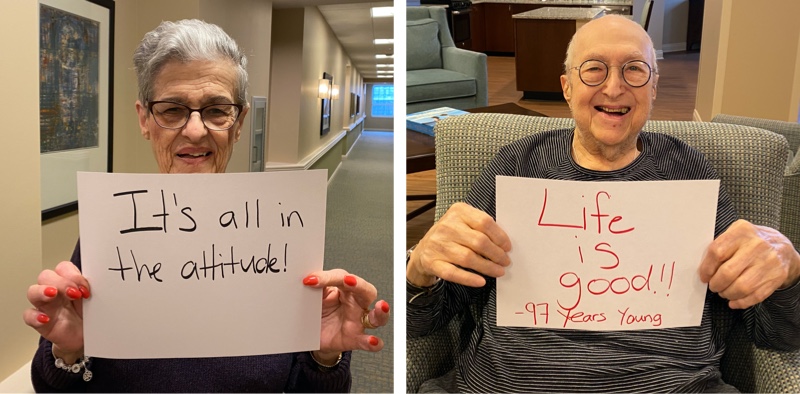 It's all in
the attitude!
Life
is
good!!
-97 Years Young